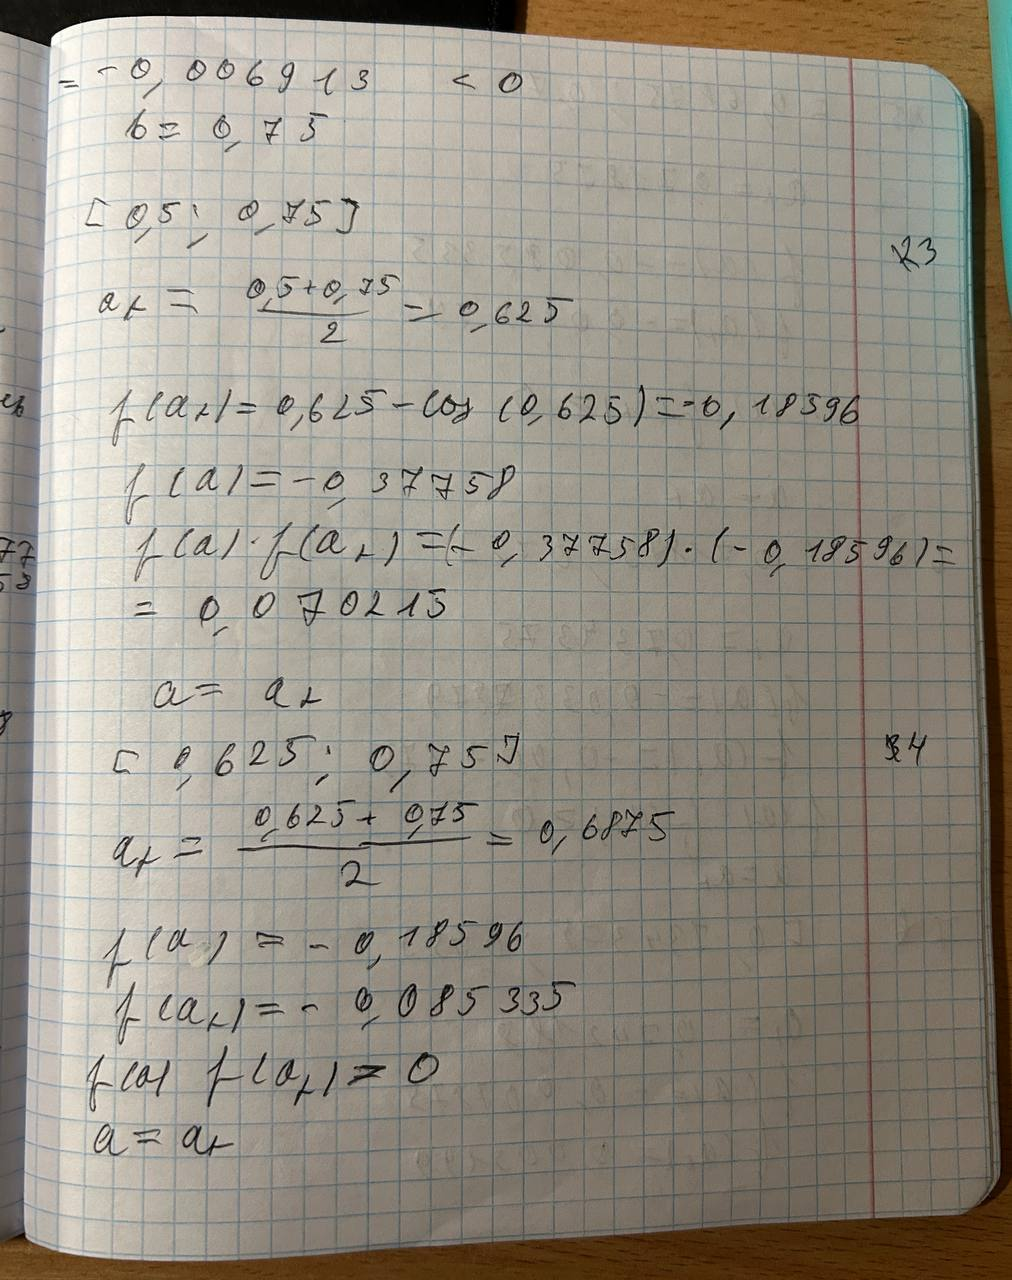 = -0,006913 < 0
b = 0,75
[0,5; 0,75]
23
a₂ = (0,5+0,75)/2 = 0,625
f(a₂) = 0,625 - cos(0,625) = -0,18596
f(a) = -0,37758
f(a)·f(a₂) = (-0,37758)·(-0,18596) =
= 0,070215
a = a₂
[0,625; 0,75]
34
a₂ = (0,625+0,75)/2 = 0,6875
f(a) = -0,18596
f(a₂) = -0,085335
f(a) f(a₂) > 0
a = a₂